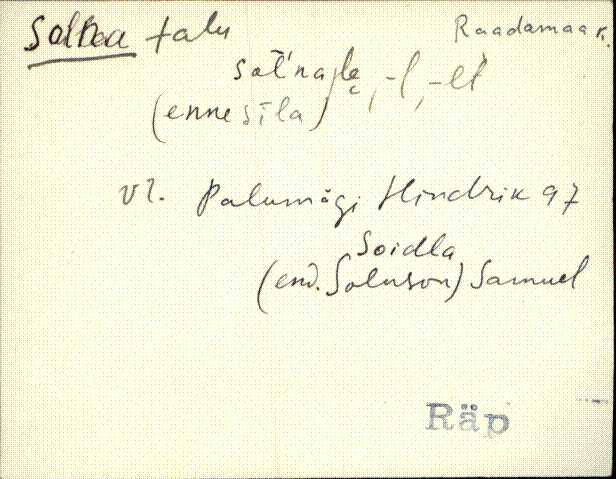 Solna talu Raadamaa k.
sol'na/le, -l, -lt
(enne sīla)
vt. Palumägi Hindrik 97
Soidla
(end. Soluson) Samuel
Räp